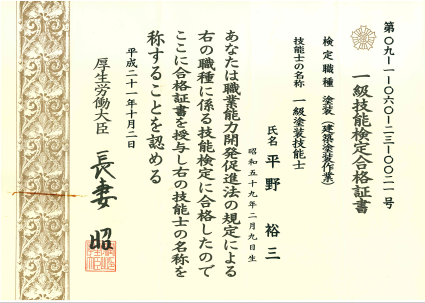 第〇九-一-〇六〇-二三-〇〇二一号
一級技能検定合格証書
検定職種 塗装（建築塗装作業）
技能士の名称 一級塗装技能士
氏名 平野 裕三
昭和五十九年二月九日生
あなたは職業能力開発促進法の規定による
右の職種に係る技能検定に合格したので
ここに合格証書を授与し右の技能士の名称を
称することを認める
平成二十一年十月二日
厚生労働大臣 長妻 昭